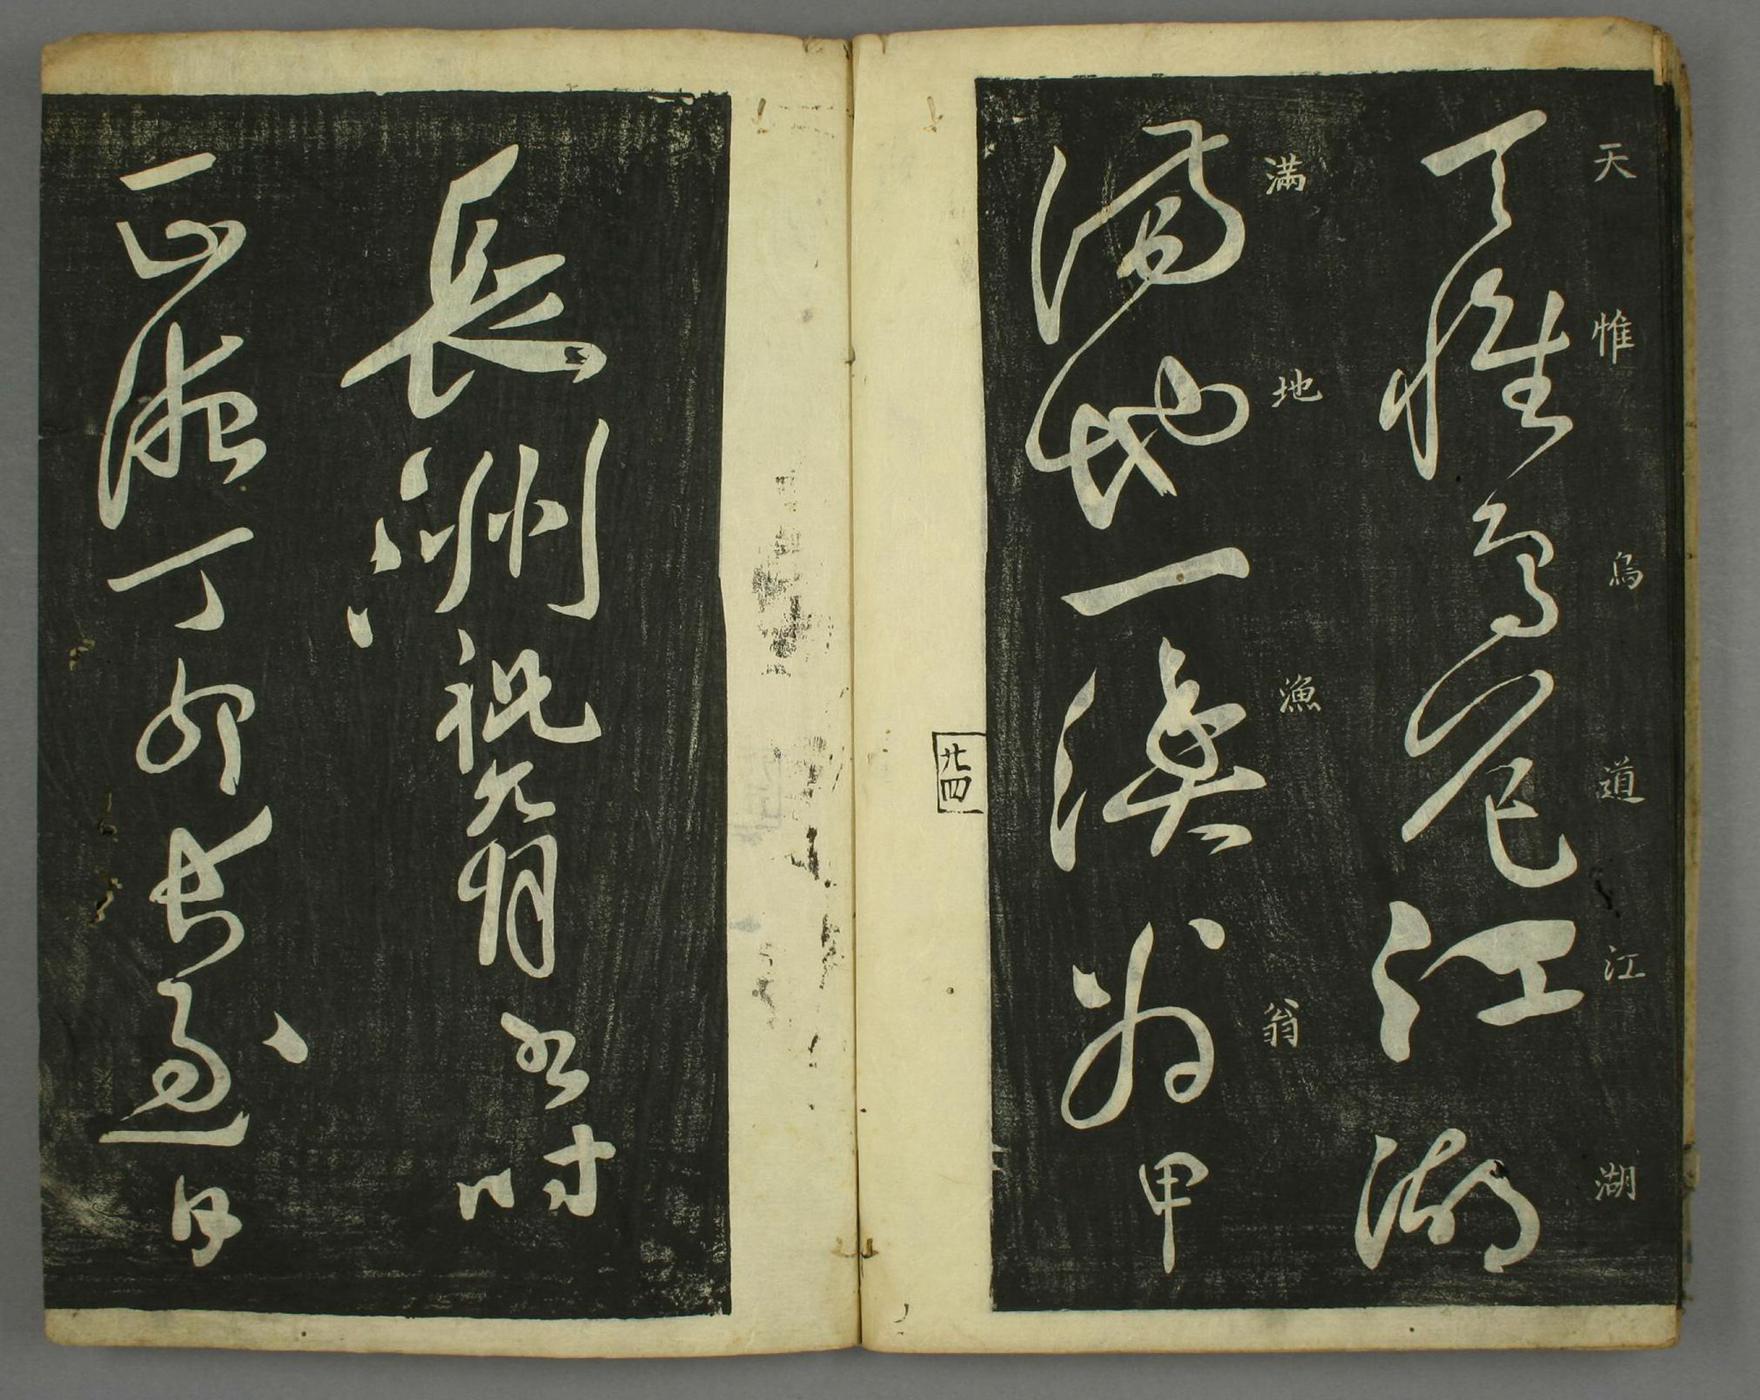 天惟鳥道江湖
天惟鳥道江湖
満地漁翁
滿地一漁翁甲
廿四
長洲祝允明書時
正德丁卯長至日